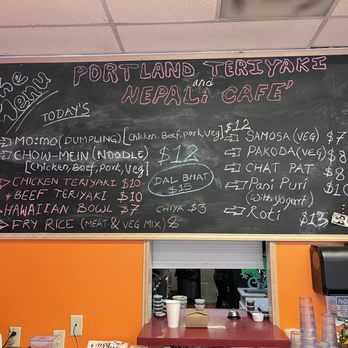 The Menu
PORTLAND TERIYAKI
and
NEPALI CAFE'
TODAY'S
MO:MO (DUMPLING) [Chicken, Beef, Pork, Veg] $12
CHOW-MEIN (NOODLE)
[Chicken, Beef, Pork, Veg] $12
CHICKEN TERIYAKI $10
* BEEF TERIYAKI $10
HAWAIIAN BOWL $7
FRY RICE (MEAT & VEG MIX) 8
DAL BHAT
$15
CHIYA $3
SAMOSA (VEG) $7
PAKODA (VEG) $8
CHAT PAT $8
Pani Puri
(with yogurt)
Roti $13